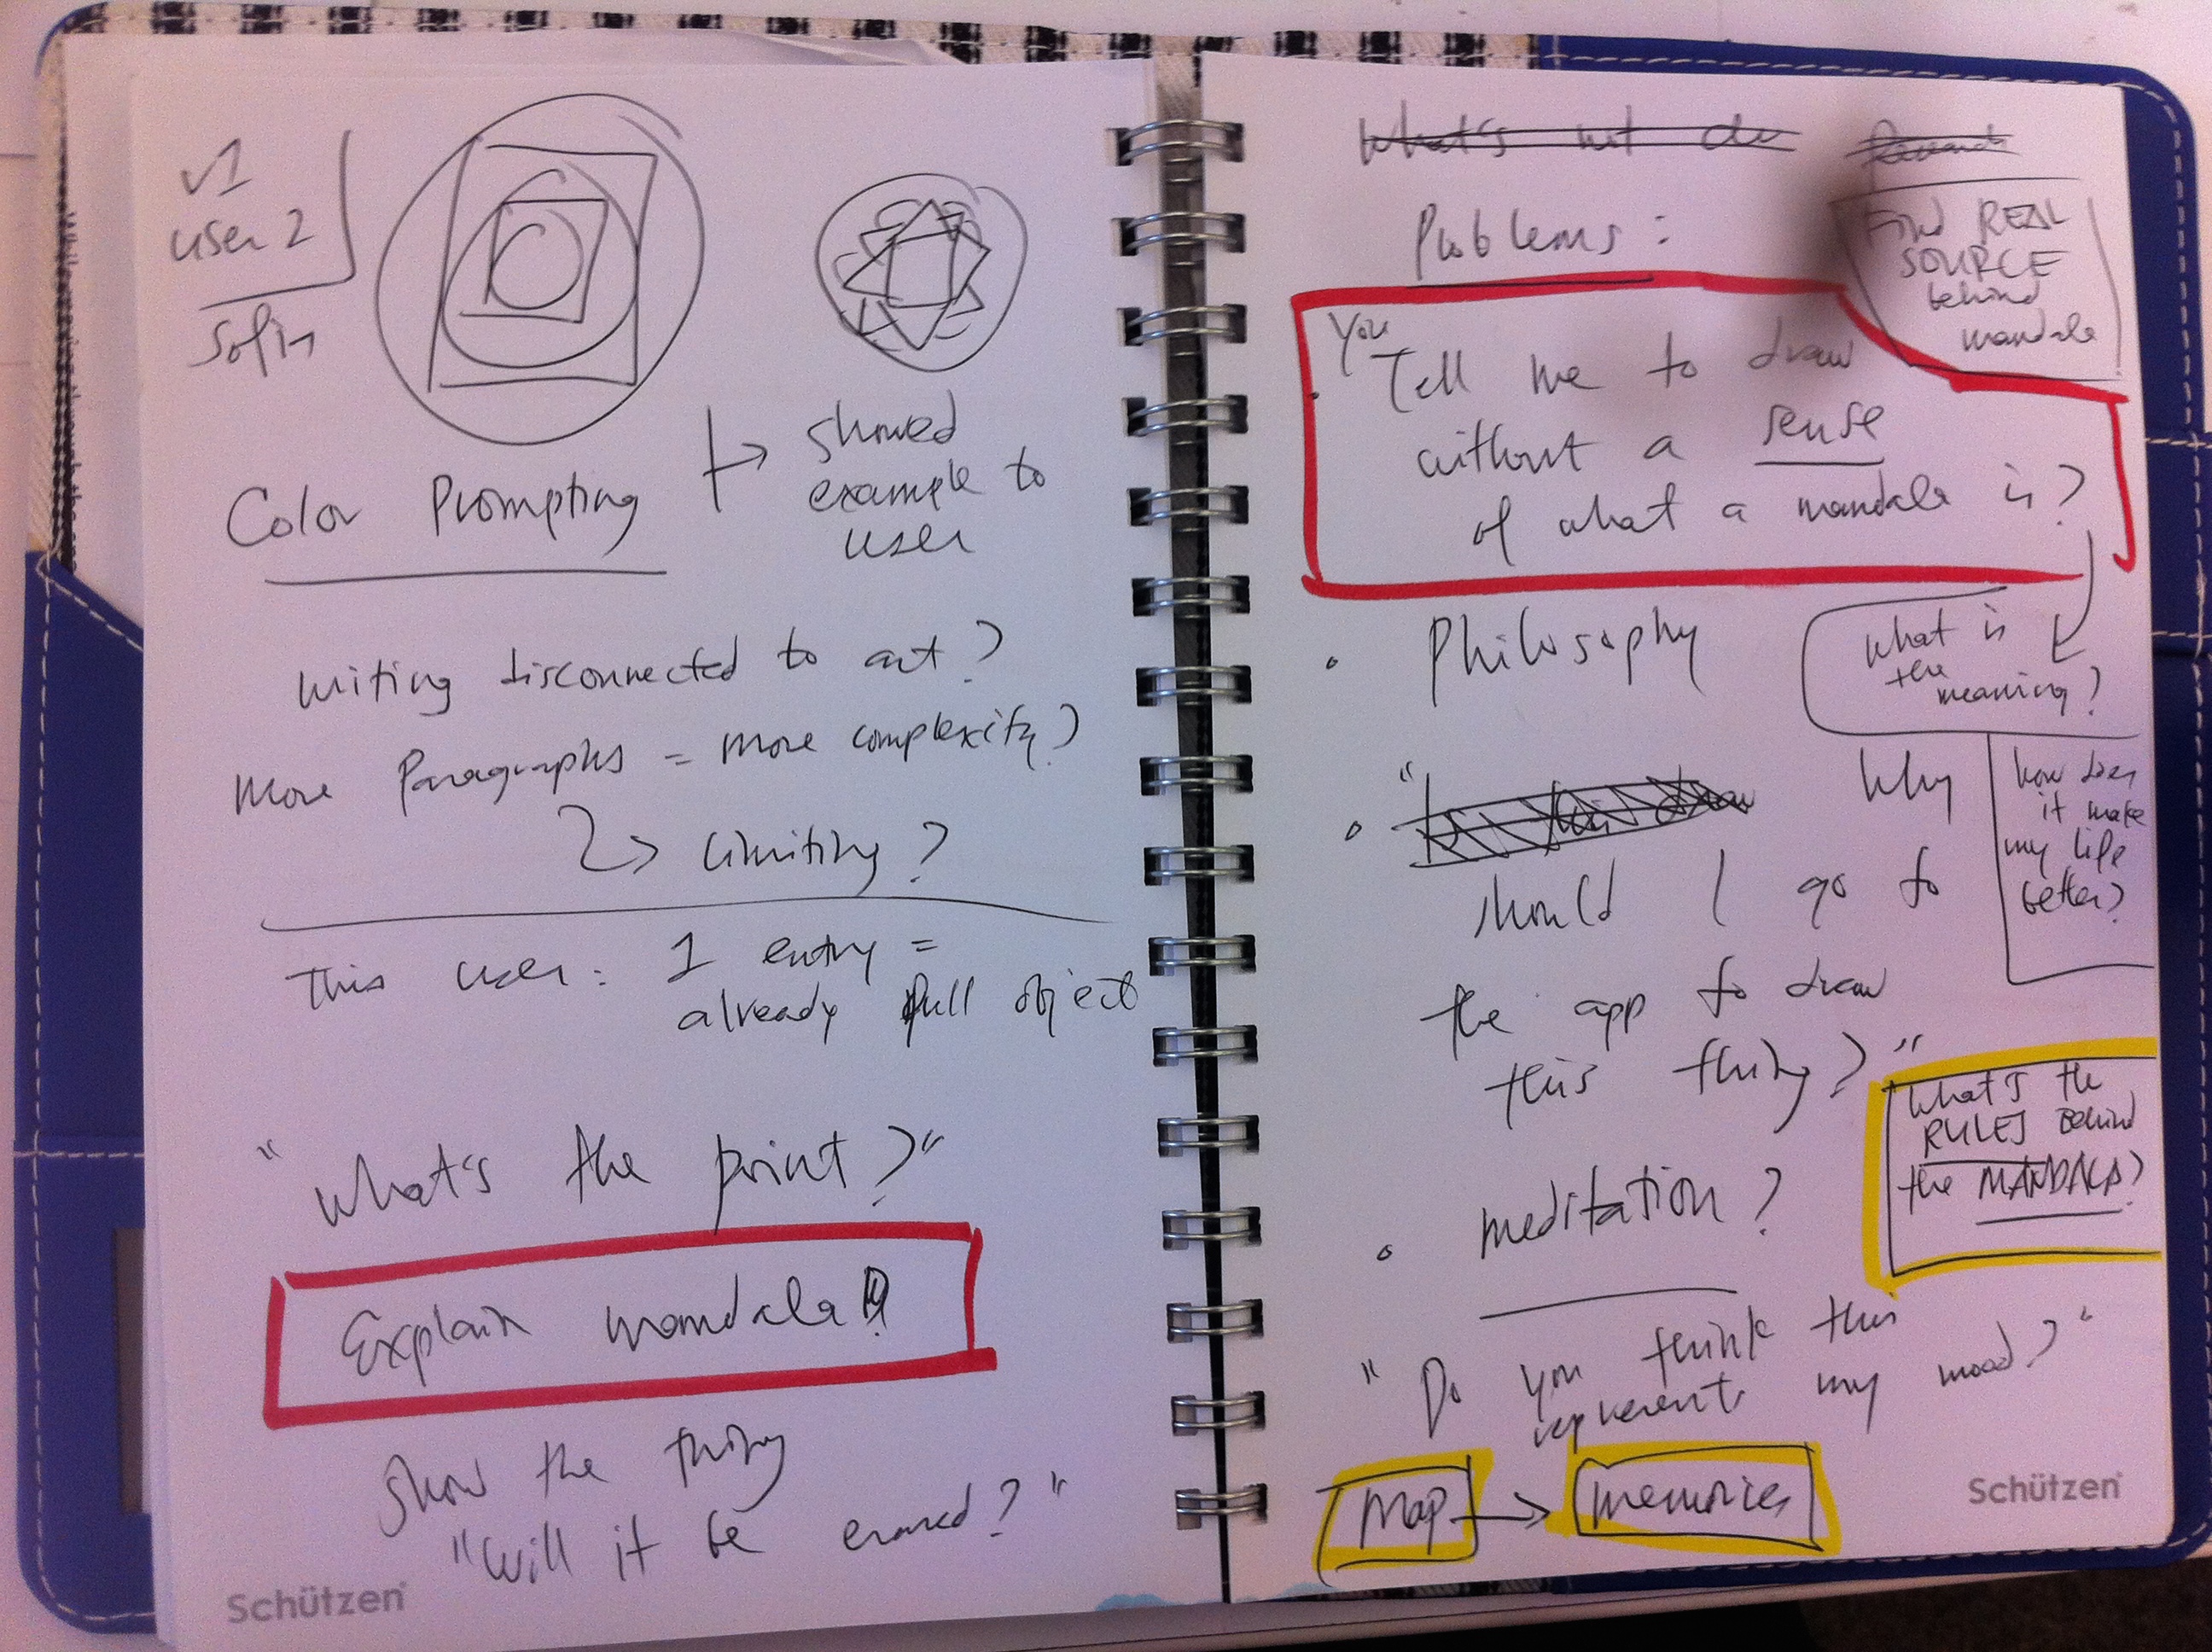 v1
user 2
Sofin
Color Prompting
showed
example to
user
writing disconnected to art?
More Paragraphs = more complexity?
limiting?
This user: 1 entry =
already full object
"What's the point?"
Explain mandala!!
Show the thing
"Will it be erased?"
Schützen
What's not
Problems:
FIND REAL
SOURCE
behind
mandala
You
Tell me to draw
without a sense
of what a mandala is?
What is
the
meaning?
Philosophy
" Why
should I go to
the app to draw
this thing?"
how does
it make
my life
better?
What's the
RULES BEHIND
the MANDALA?
meditation?
"Do you think this
represents my mood?"
Map → memories
Schützen